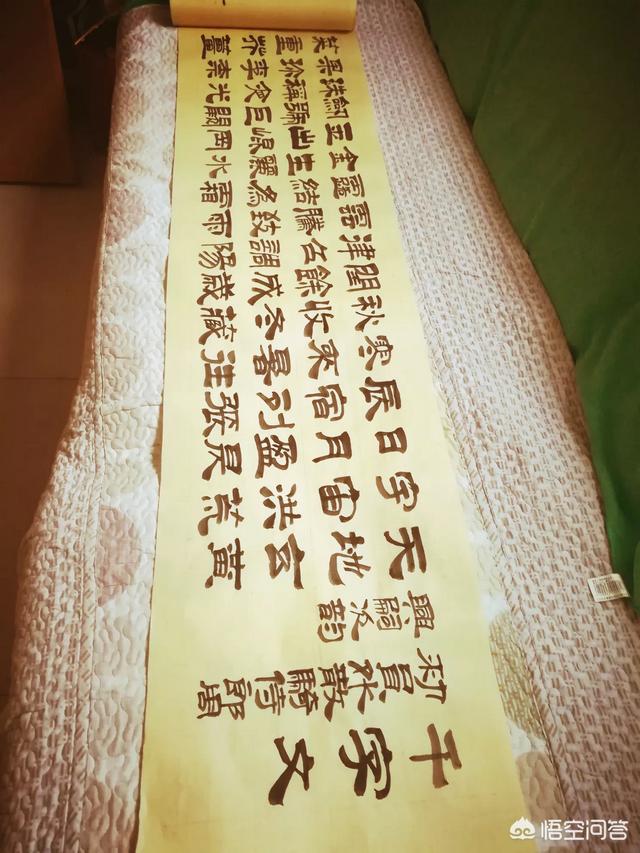 千字文
勅員外散騎侍郎周
興嗣次韻
天地玄黃
宇宙洪荒
日月盈昃
辰宿列張
寒來暑往
秋收冬藏
閏餘成歲
律召調陽
雲騰致雨
露結為霜
金生麗水
玉出崐岡
劍號巨闕
珠稱夜光
果珍李柰
菜重芥薑
悟空问答